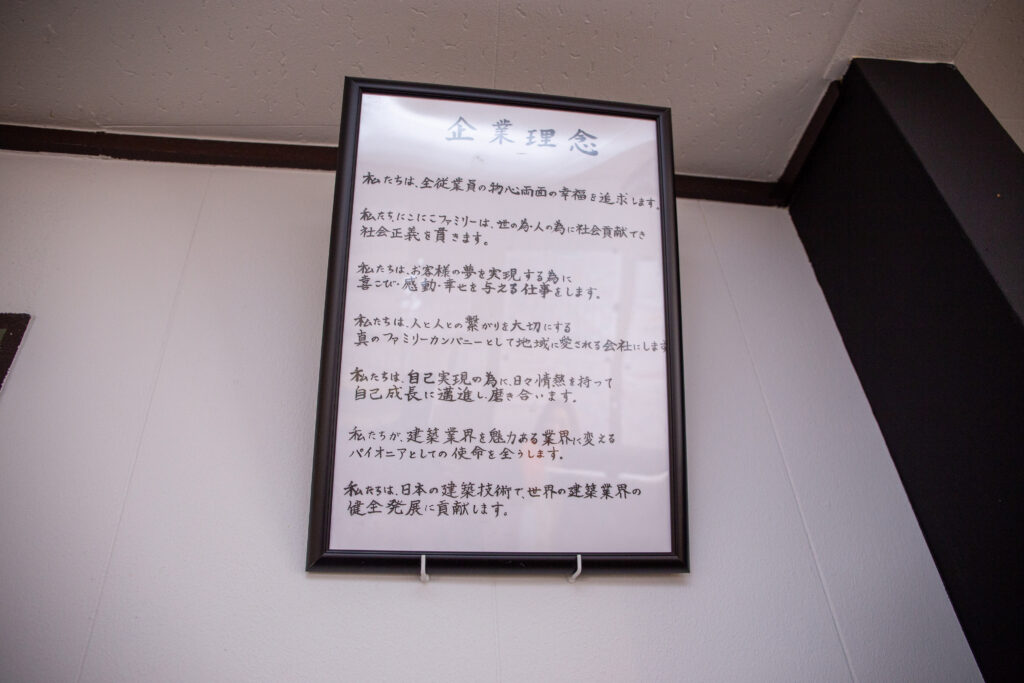 企業理念
私たちは、全従業員の物心両面の幸福を追求します。
私たち、にこにこファミリーは、世の為・人の為に社会貢献でき
社会正義を貫きます。
私たちは、お客様の夢を実現する為に
喜こび・感動・幸せを与える仕事をします。
私たちは、人と人との繋がりを大切にする
真のファミリーカンパニーとして地域に愛される会社にします
私たちは、自己実現の為に、日々情熱を持って
自己成長に邁進し、磨き合います。
私たちが、建築業界を魅力ある業界に変える
パイオニアとしての使命を全うします。
私たちは、日本の建築技術で、世界の建築業界の
健全発展に貢献します。